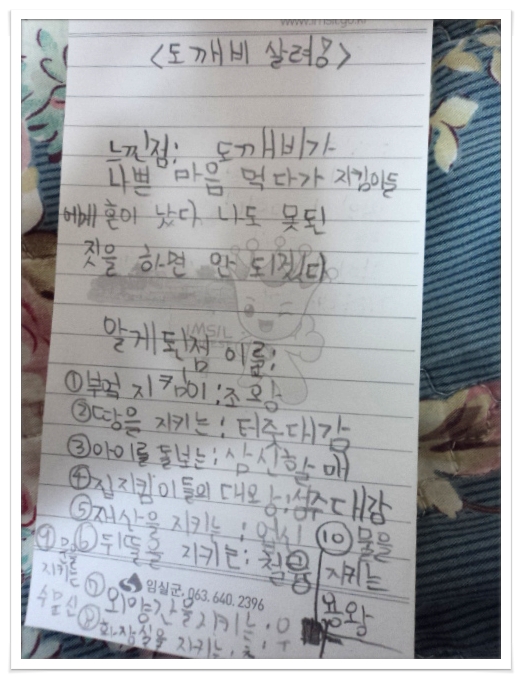 <도깨비 살려용>
느낀점: 도깨비가
나쁜 마음 먹다가 지킴이들
에베 혼이 났다 나도 못된
짓을 하면 안 되겠다
IMSIL
알게된점 이름:
①부엌 지킴이:조왕
②땅을 지키는:터주대감
③아이를 돌보는:삼신할매
④집지킴이들의 대왕:성주대감
⑤재산을 지키는:업신
⑥뒤뜰을 지키는:철융
⑦외양간을 지키는:우
⑧화장실을 지키는:측
⑨ 문을
지키는
수문신
⑩물을
지키는
용왕
임실군. 063.640.2396